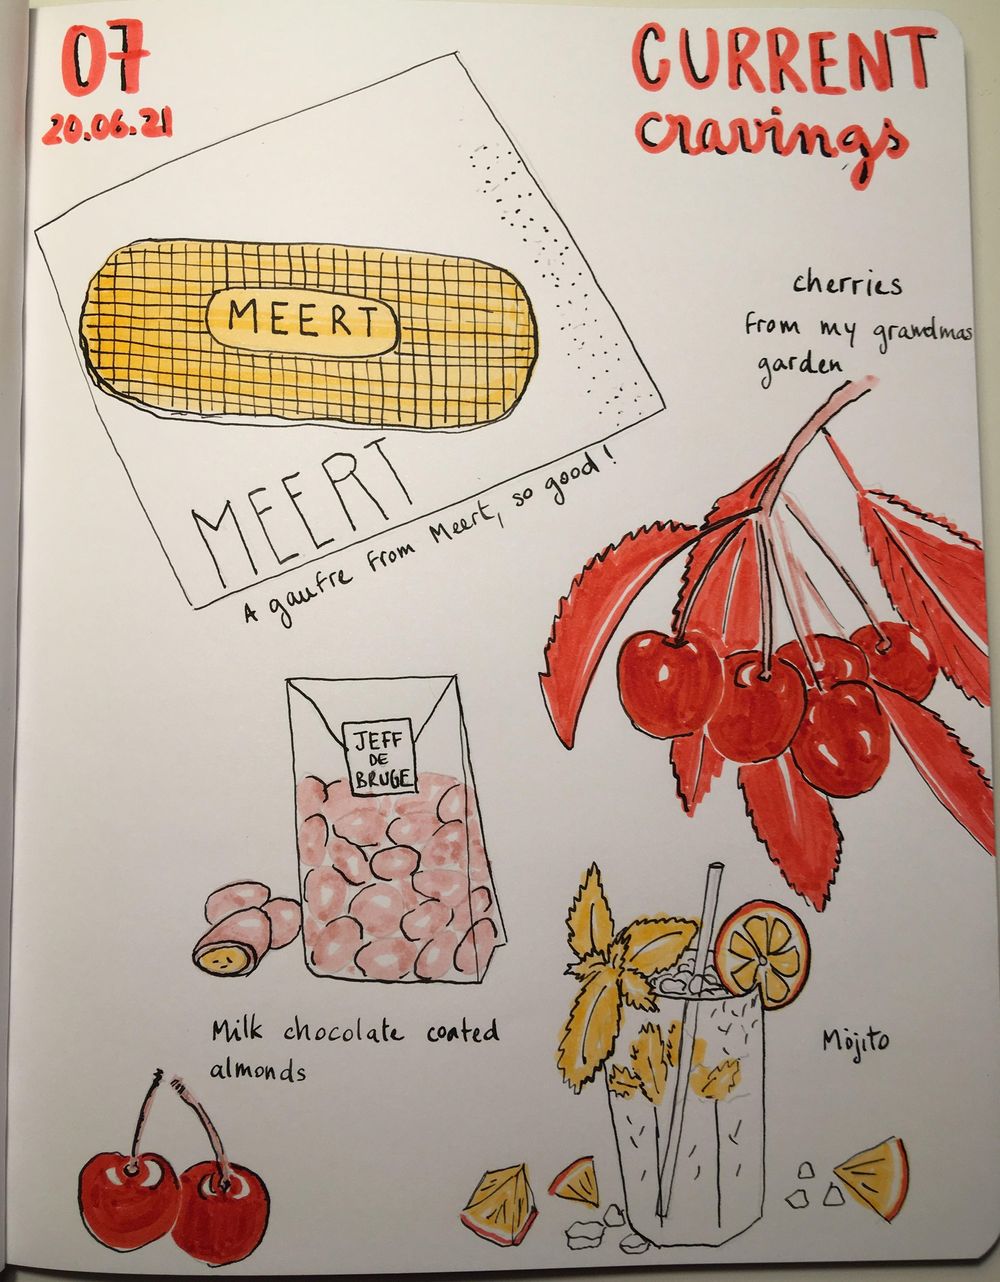 07
20.06.21
CURRENT
cravings
MEERT
MEERT
A gaufre from Meert, so good!
cherries
from my grandmas
garden
JEFF
DE
BRUGE
Milk chocolate coated
almonds
Mojito